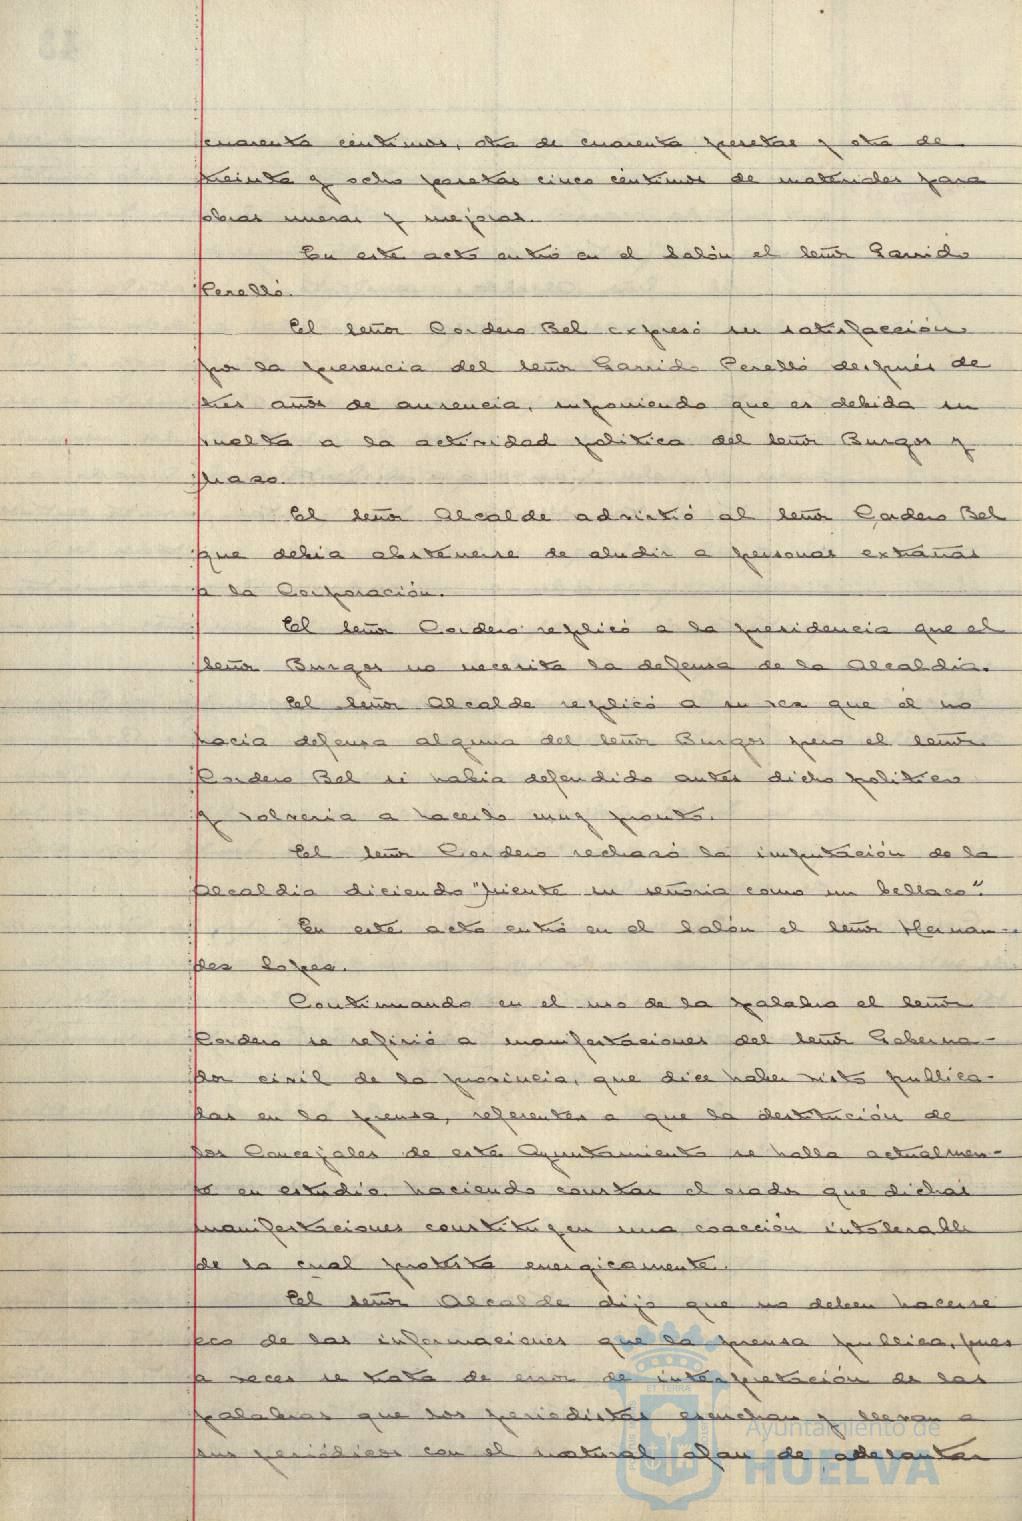 cuarenta céntimos, otra de cuarenta pesetas y otra de
treinta y ocho pesetas cinco céntimos de materiales para
obras nuevas y mejoras.
En este acto entró en el Salón el Señor Garrido
Perelló.
El Señor Cordero Bel expresó su satisfacción
por la presencia del Señor Garrido Perelló después de
tres años de ausencia, suponiendo que es debida su
vuelta a la actividad política del Señor Burgos y
Mazo.
El Señor Alcalde advirtió al Señor Cordero Bel
que debia abstenerse de aludir a personas extrañas
a la Corporación.
El Señor Cordero replicó a la presidencia que el
Señor Burgos no necesita la defensa de la Alcaldia.
El Señor Alcalde replicó a su vez que él no
hacia defensa alguna del Señor Burgos pero el Señor
Cordero Bel si habia defendido antes dicho politico
y volveria a hacerlo muy pronto.
El Señor Cordero rechazó la imputación de la
Alcaldia diciendo "Miente su señoria como un bellaco".
En este acto entró en el Salón el Señor Hernan-
dez Lopez.
Continuando en el uso de la palabra el Señor
Cordero se refirió a manifestaciones del Señor Goberna-
dor civil de la provincia, que dice haber visto publica-
das en la prensa, referentes a que la destitución de
los Concejales de este Ayuntamiento se halla actualmen-
te en estudio, haciendo constar el orador que dichas
manifestaciones constituyen una coacción intolerable
de la cual protesta energicamente.
El Señor Alcalde dijo que no deben hacerse
eco de las informaciones que la prensa publica, pues
a veces se trata de error de interpretación de las
palabras que los periodistas escuchan y llevan a
sus periódicos con el natural afan de adelantar
ET TERRÆ
Ayuntamiento de
HUELVA